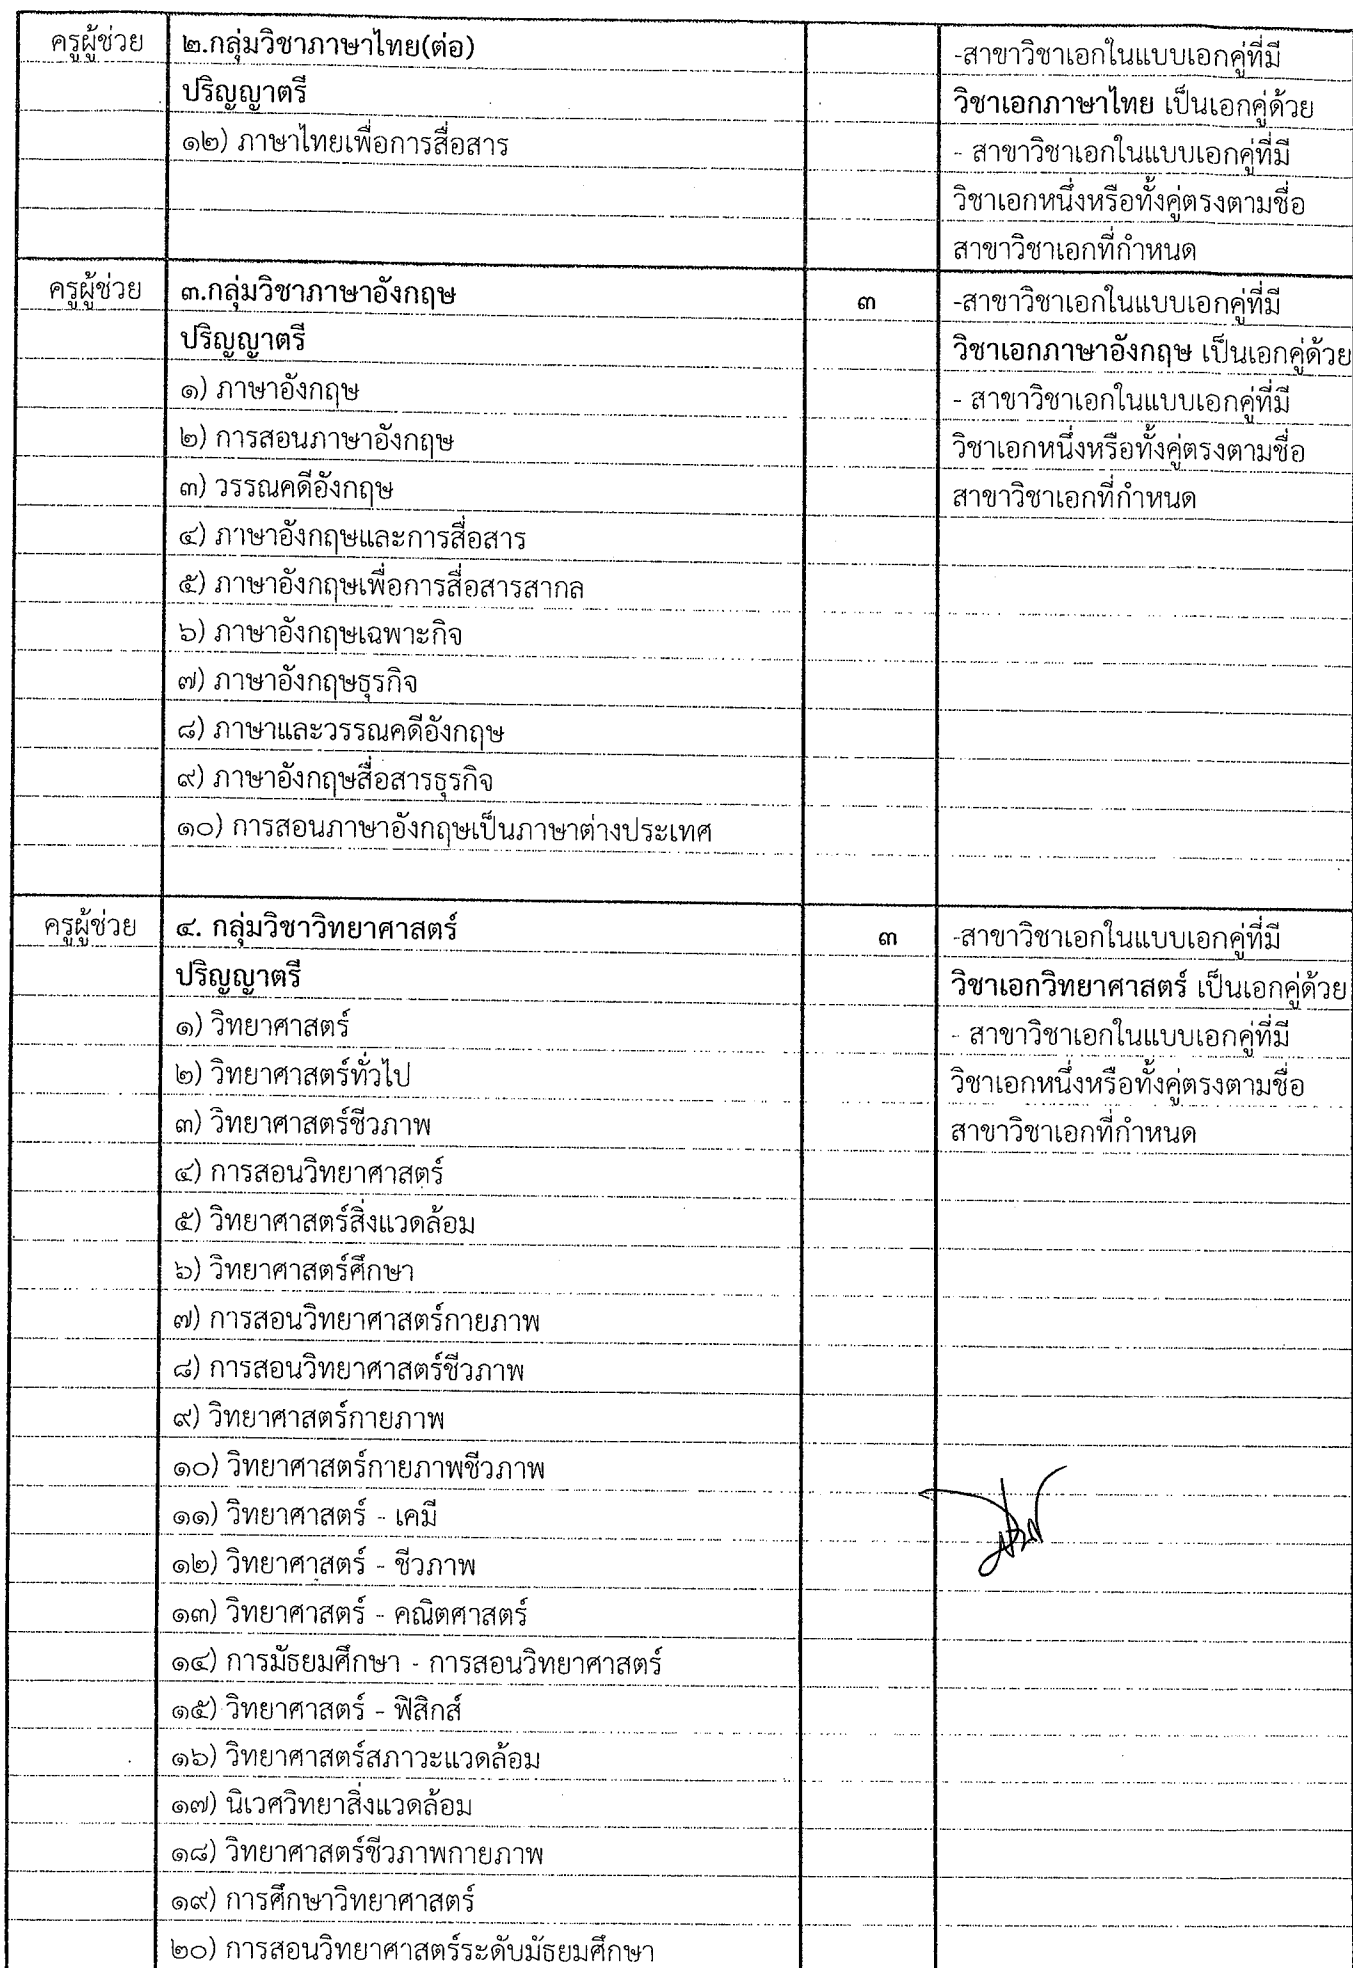 ครูผู้ช่วย ๒.กลุ่มวิชาภาษาไทย(ต่อ) -สาขาวิชาเอกในแบบเอกคู่ที่มี
ปริญญาตรี วิชาเอกภาษาไทย เป็นเอกคู่ด้วย
๑๒) ภาษาไทยเพื่อการสื่อสาร - สาขาวิชาเอกในแบบเอกคู่ที่มี
วิชาเอกหนึ่งหรือทั้งคู่ตรงตามชื่อ
สาขาวิชาเอกที่กำหนด
ครูผู้ช่วย ๓.กลุ่มวิชาภาษาอังกฤษ ๓ -สาขาวิชาเอกในแบบเอกคู่ที่มี
ปริญญาตรี วิชาเอกภาษาอังกฤษ เป็นเอกคู่ด้วย
๑) ภาษาอังกฤษ - สาขาวิชาเอกในแบบเอกคู่ที่มี
๒) การสอนภาษาอังกฤษ วิชาเอกหนึ่งหรือทั้งคู่ตรงตามชื่อ
๓) วรรณคดีอังกฤษ สาขาวิชาเอกที่กำหนด
๔) ภาษาอังกฤษและการสื่อสาร
๕) ภาษาอังกฤษเพื่อการสื่อสารสากล
๖) ภาษาอังกฤษเฉพาะกิจ
๗) ภาษาอังกฤษธุรกิจ
๘) ภาษาและวรรณคดีอังกฤษ
๙) ภาษาอังกฤษสื่อสารธุรกิจ
๑๐) การสอนภาษาอังกฤษเป็นภาษาต่างประเทศ
ครูผู้ช่วย ๔. กลุ่มวิชาวิทยาศาสตร์ ๓ -สาขาวิชาเอกในแบบเอกคู่ที่มี
ปริญญาตรี วิชาเอกวิทยาศาสตร์ เป็นเอกคู่ด้วย
๑) วิทยาศาสตร์ - สาขาวิชาเอกในแบบเอกคู่ที่มี
๒) วิทยาศาสตร์ทั่วไป วิชาเอกหนึ่งหรือทั้งคู่ตรงตามชื่อ
๓) วิทยาศาสตร์ชีวภาพ สาขาวิชาเอกที่กำหนด
๔) การสอนวิทยาศาสตร์
๕) วิทยาศาสตร์สิ่งแวดล้อม
๖) วิทยาศาสตร์ศึกษา
๗) การสอนวิทยาศาสตร์กายภาพ
๘) การสอนวิทยาศาสตร์ชีวภาพ
๙) วิทยาศาสตร์กายภาพ
๑๐) วิทยาศาสตร์กายภาพชีวภาพ
๑๑) วิทยาศาสตร์ - เคมี
๑๒) วิทยาศาสตร์ - ชีวภาพ
๑๓) วิทยาศาสตร์ - คณิตศาสตร์
๑๔) การมัธยมศึกษา - การสอนวิทยาศาสตร์
๑๕) วิทยาศาสตร์ - ฟิสิกส์
๑๖) วิทยาศาสตร์สภาวะแวดล้อม
๑๗) นิเวศวิทยาสิ่งแวดล้อม
๑๘) วิทยาศาสตร์ชีวภาพกายภาพ
๑๙) การศึกษาวิทยาศาสตร์
๒๐) การสอนวิทยาศาสตร์ระดับมัธยมศึกษา